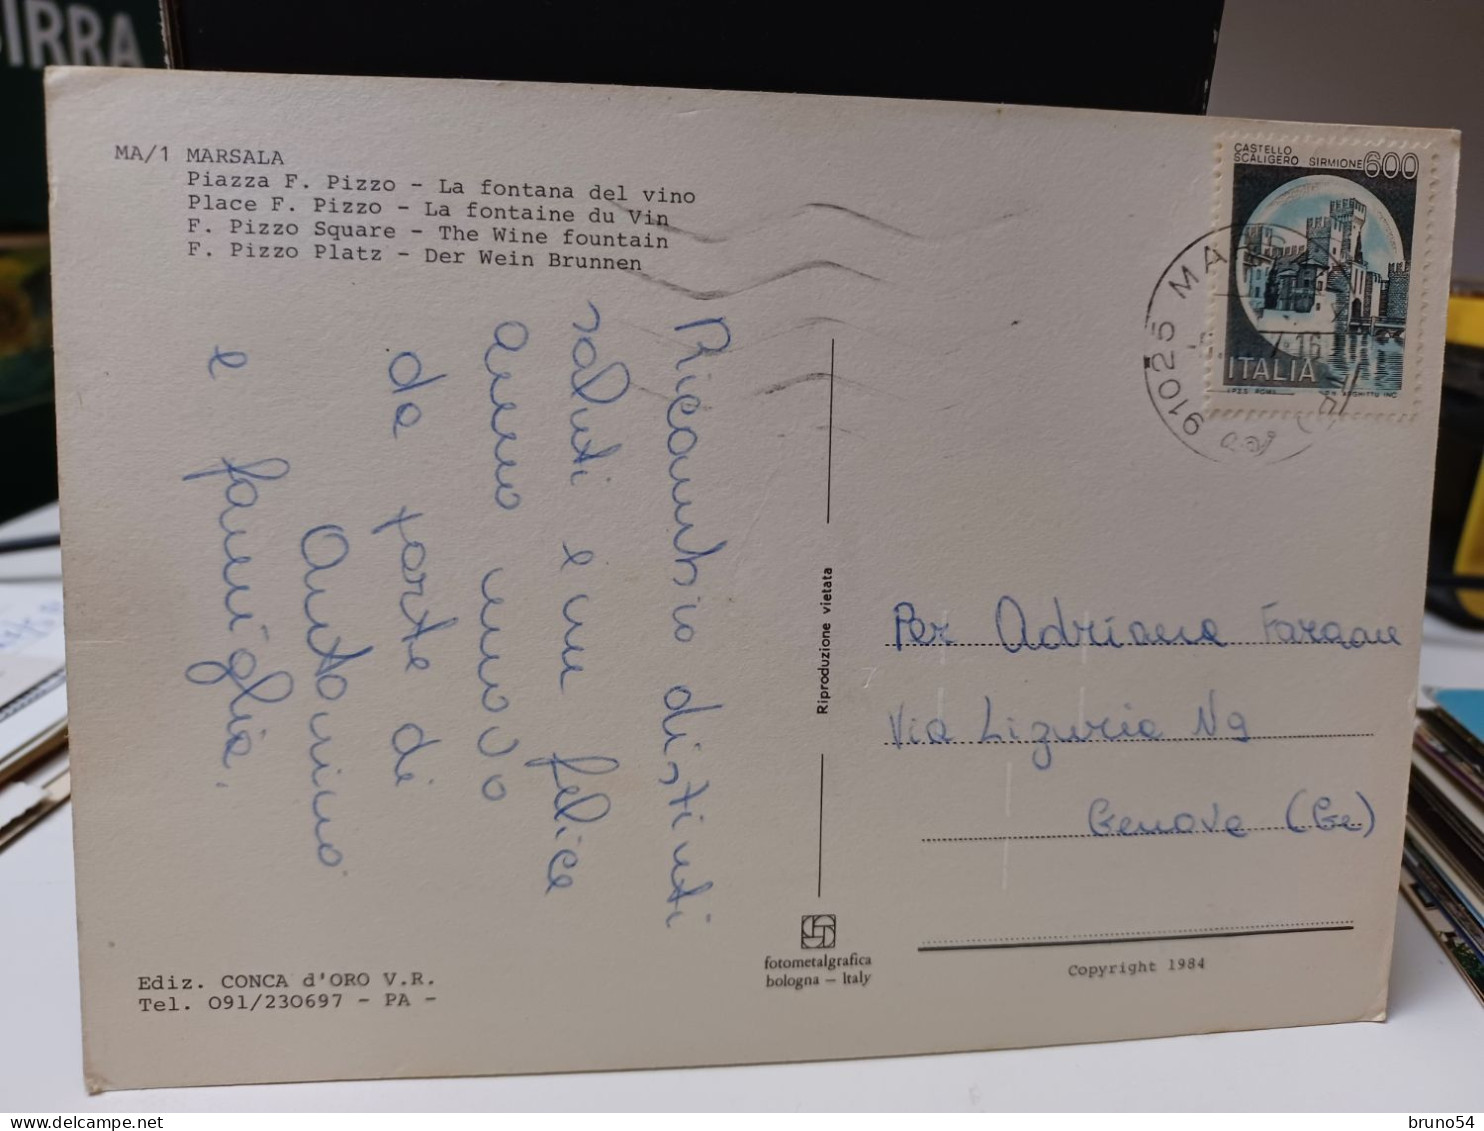 BIRRA
MA/1 MARSALA
Piazza F. Pizzo - La fontana del vino
Place F. Pizzo - La fontaine du Vin
F. Pizzo Square - The Wine fountain
F. Pizzo Platz - Der Wein Brunnen
Ricambio distinti
saluti e un felice
anno nuovo
da parte di
Antonino
e famiglia.
Ediz. CONCA d'ORO V.R.
Tel. 091/230697 - PA -
Riproduzione vietata
fotometalgrafica
bologna - Italy
CASTELLO
SCALIGERO SIRMIONE 600
ITALIA
I.P.Z.S. ROMA
91025 MA
Per Adriana
Via Liguria N9
Genova (Ge)
Copyright 1984
bruno54